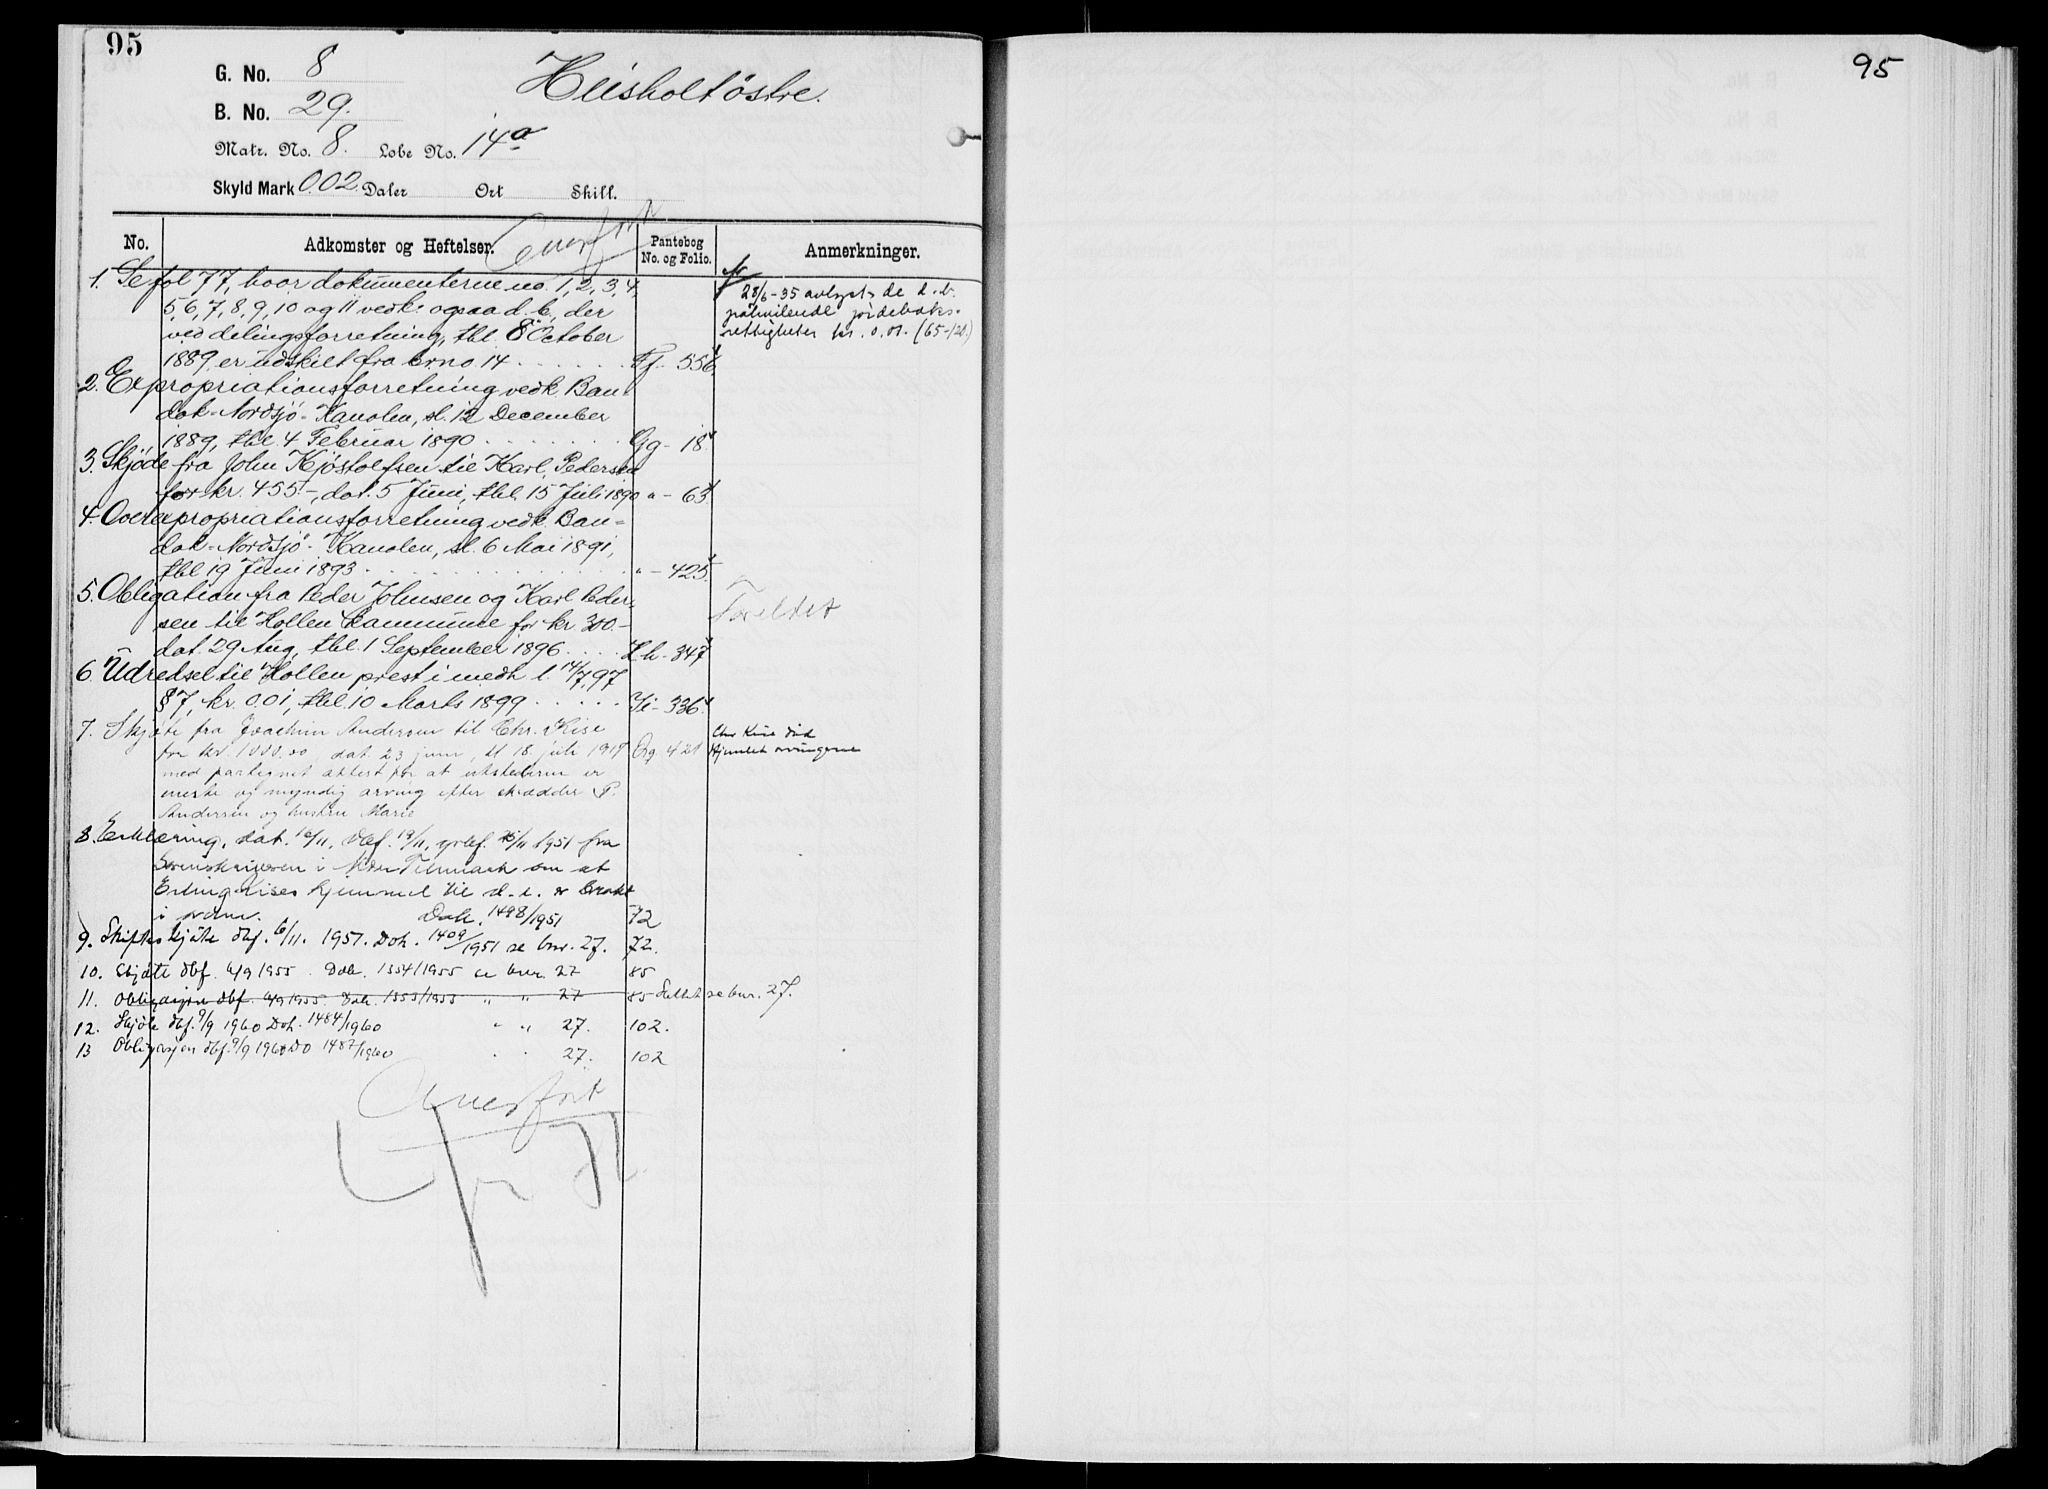 95
G. No. 8
Heisholt østre.
B. No. 29.
Matr. No. 8. Løbe No. 14a
Skyld Mark 0.02. Daler Ort Skill.
Overført
No. Adkomster og Heftelser. Pantebog No. og Folio. Anmerkninger.
1. Se fol 77, hvor dokumenterne no. 1, 2, 3, 4,
5, 6, 7, 8, 9, 10 og 11 vedk. ogsaa d. b., der
ved delingsforretning, tbl. 8 October
1889 er udskilt fra br.no. 14 . . . . . . Ff - 556
28/6-35 avlyst de d. b.
påhvilende jordeboks-
rettigheter kr. 0.01. (65-121)
2. Expropriationsforretning vedk. Ban-
dak-Nordsjø-Kanalen, sl. 12 December
1889, tbl. 4 Februar 1890 . . . . . . Gg - 18
3. Skjøde fra John Kjøstolfsen til Karl Pedersen
for kr. 455.-, dat. 5 Juni, tbl. 15 Juli 1890 " - 63
4. Overexpropriationsforretning vedk. Ban-
dak-Nordsjø-Kanalen, sl. 6 Mai 1891,
tbl 19 Juni 1893 . . . . . . " - 425
5. Obligation fra Peder Johnsen og Karl Peder-
sen til Hollen kommune for kr 300.-
dat. 29 Aug, tbl. 1 September 1896 . . . . Hh - 347
Foreldet
6. Udredsel til Hollen prest i medh. l. 14/7 97
§ 7, kr. 0.01, tbl. 10 Marts 1899 . . . . . Ii - 336
7. Skjøte fra Joachim Andersen til Chr. Kise
for kr. 1000.00 dat. 23 juni, tl 18. juli 1919 Qq 421
med partegnet attest for at utstederen er
eneste og myndig arving efter skrædder P.
Andersen og hustru Marie
Chr Kise død
Hjemlet arvingerne
8. Erklæring, dat. 16/11, dbf. 19/11, 1951 fra
Sorenskriveren i Nedre Telemark om at
Erling Kises hjemmel til d. e. er brakt
i orden. Dok. 1498/1951 72
9. Skifteskjøte dbf. 6/11. 1951. Dok. 1409/1951 se bnr. 27. 72.
10. Skjøte dbf. 6/9 1955. Dok. 1354/1955 se bnr. 27 85
11. Obligasjon dbf. 6/9 1955. Dok. 1355/1955 " " 27 85 Slettet se bnr. 27.
12. Skjøte dbf. 9/9 1960 Dok. 1484/1960 " " 27. 102.
13 Obligasjon dbf. 9/9 1960 Do 1487/1960 " " 27. 102
Overført
95